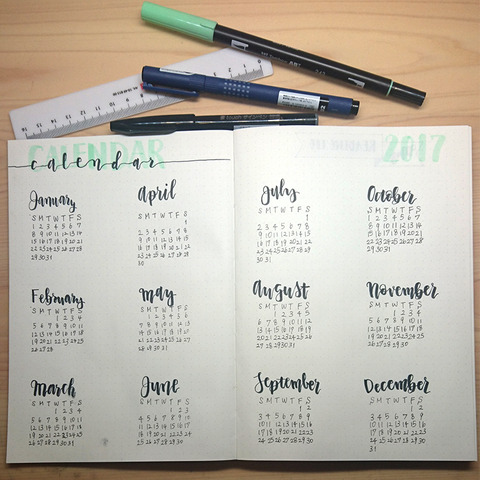 CALENDAR
calendar
2017
January
S M T W T F S
1 2 3 4 5 6 7
8 9 10 11 12 13 14
15 16 17 18 19 20 21
22 23 24 25 26 27 28
29 30 31
February
S M T W T F S
1 2 3 4
5 6 7 8 9 10 11
12 13 14 15 16 17 18
19 20 21 22 23 24 25
26 27 28
March
S M T W T F S
1 2 3 4
5 6 7 8 9 10 11
12 13 14 15 16 17 18
19 20 21 22 23 24 25
26 27 28 29 30 31
April
S M T W T F S
1
2 3 4 5 6 7 8
9 10 11 12 13 14 15
16 17 18 19 20 21 22
23 24 25 26 27 28 29
30
May
S M T W T F S
1 2 3 4 5 6
7 8 9 10 11 12 13
14 15 16 17 18 19 20
21 22 23 24 25 26 27
28 29 30 31
June
S M T W T F S
1 2 3
4 5 6 7 8 9 10
11 12 13 14 15 16 17
18 19 20 21 22 23 24
25 26 27 28 29 30
July
S M T W T F S
1
2 3 4 5 6 7 8
9 10 11 12 13 14 15
16 17 18 19 20 21 22
23 24 25 26 27 28 29
30 31
August
S M T W T F S
1 2 3 4 5
6 7 8 9 10 11 12
13 14 15 16 17 18 19
20 21 22 23 24 25 26
27 28 29 30 31
September
S M T W T F S
1 2
3 4 5 6 7 8 9
10 11 12 13 14 15 16
17 18 19 20 21 22 23
24 25 26 27 28 29 30
October
S M T W T F S
1 2 3 4 5 6 7
8 9 10 11 12 13 14
15 16 17 18 19 20 21
22 23 24 25 26 27 28
29 30 31
November
S M T W T F S
1 2 3 4
5 6 7 8 9 10 11
12 13 14 15 16 17 18
19 20 21 22 23 24 25
26 27 28 29 30
December
S M T W T F S
1 2
3 4 5 6 7 8 9
10 11 12 13 14 15 16
17 18 19 20 21 22 23
24 25 26 27 28 29 30
31